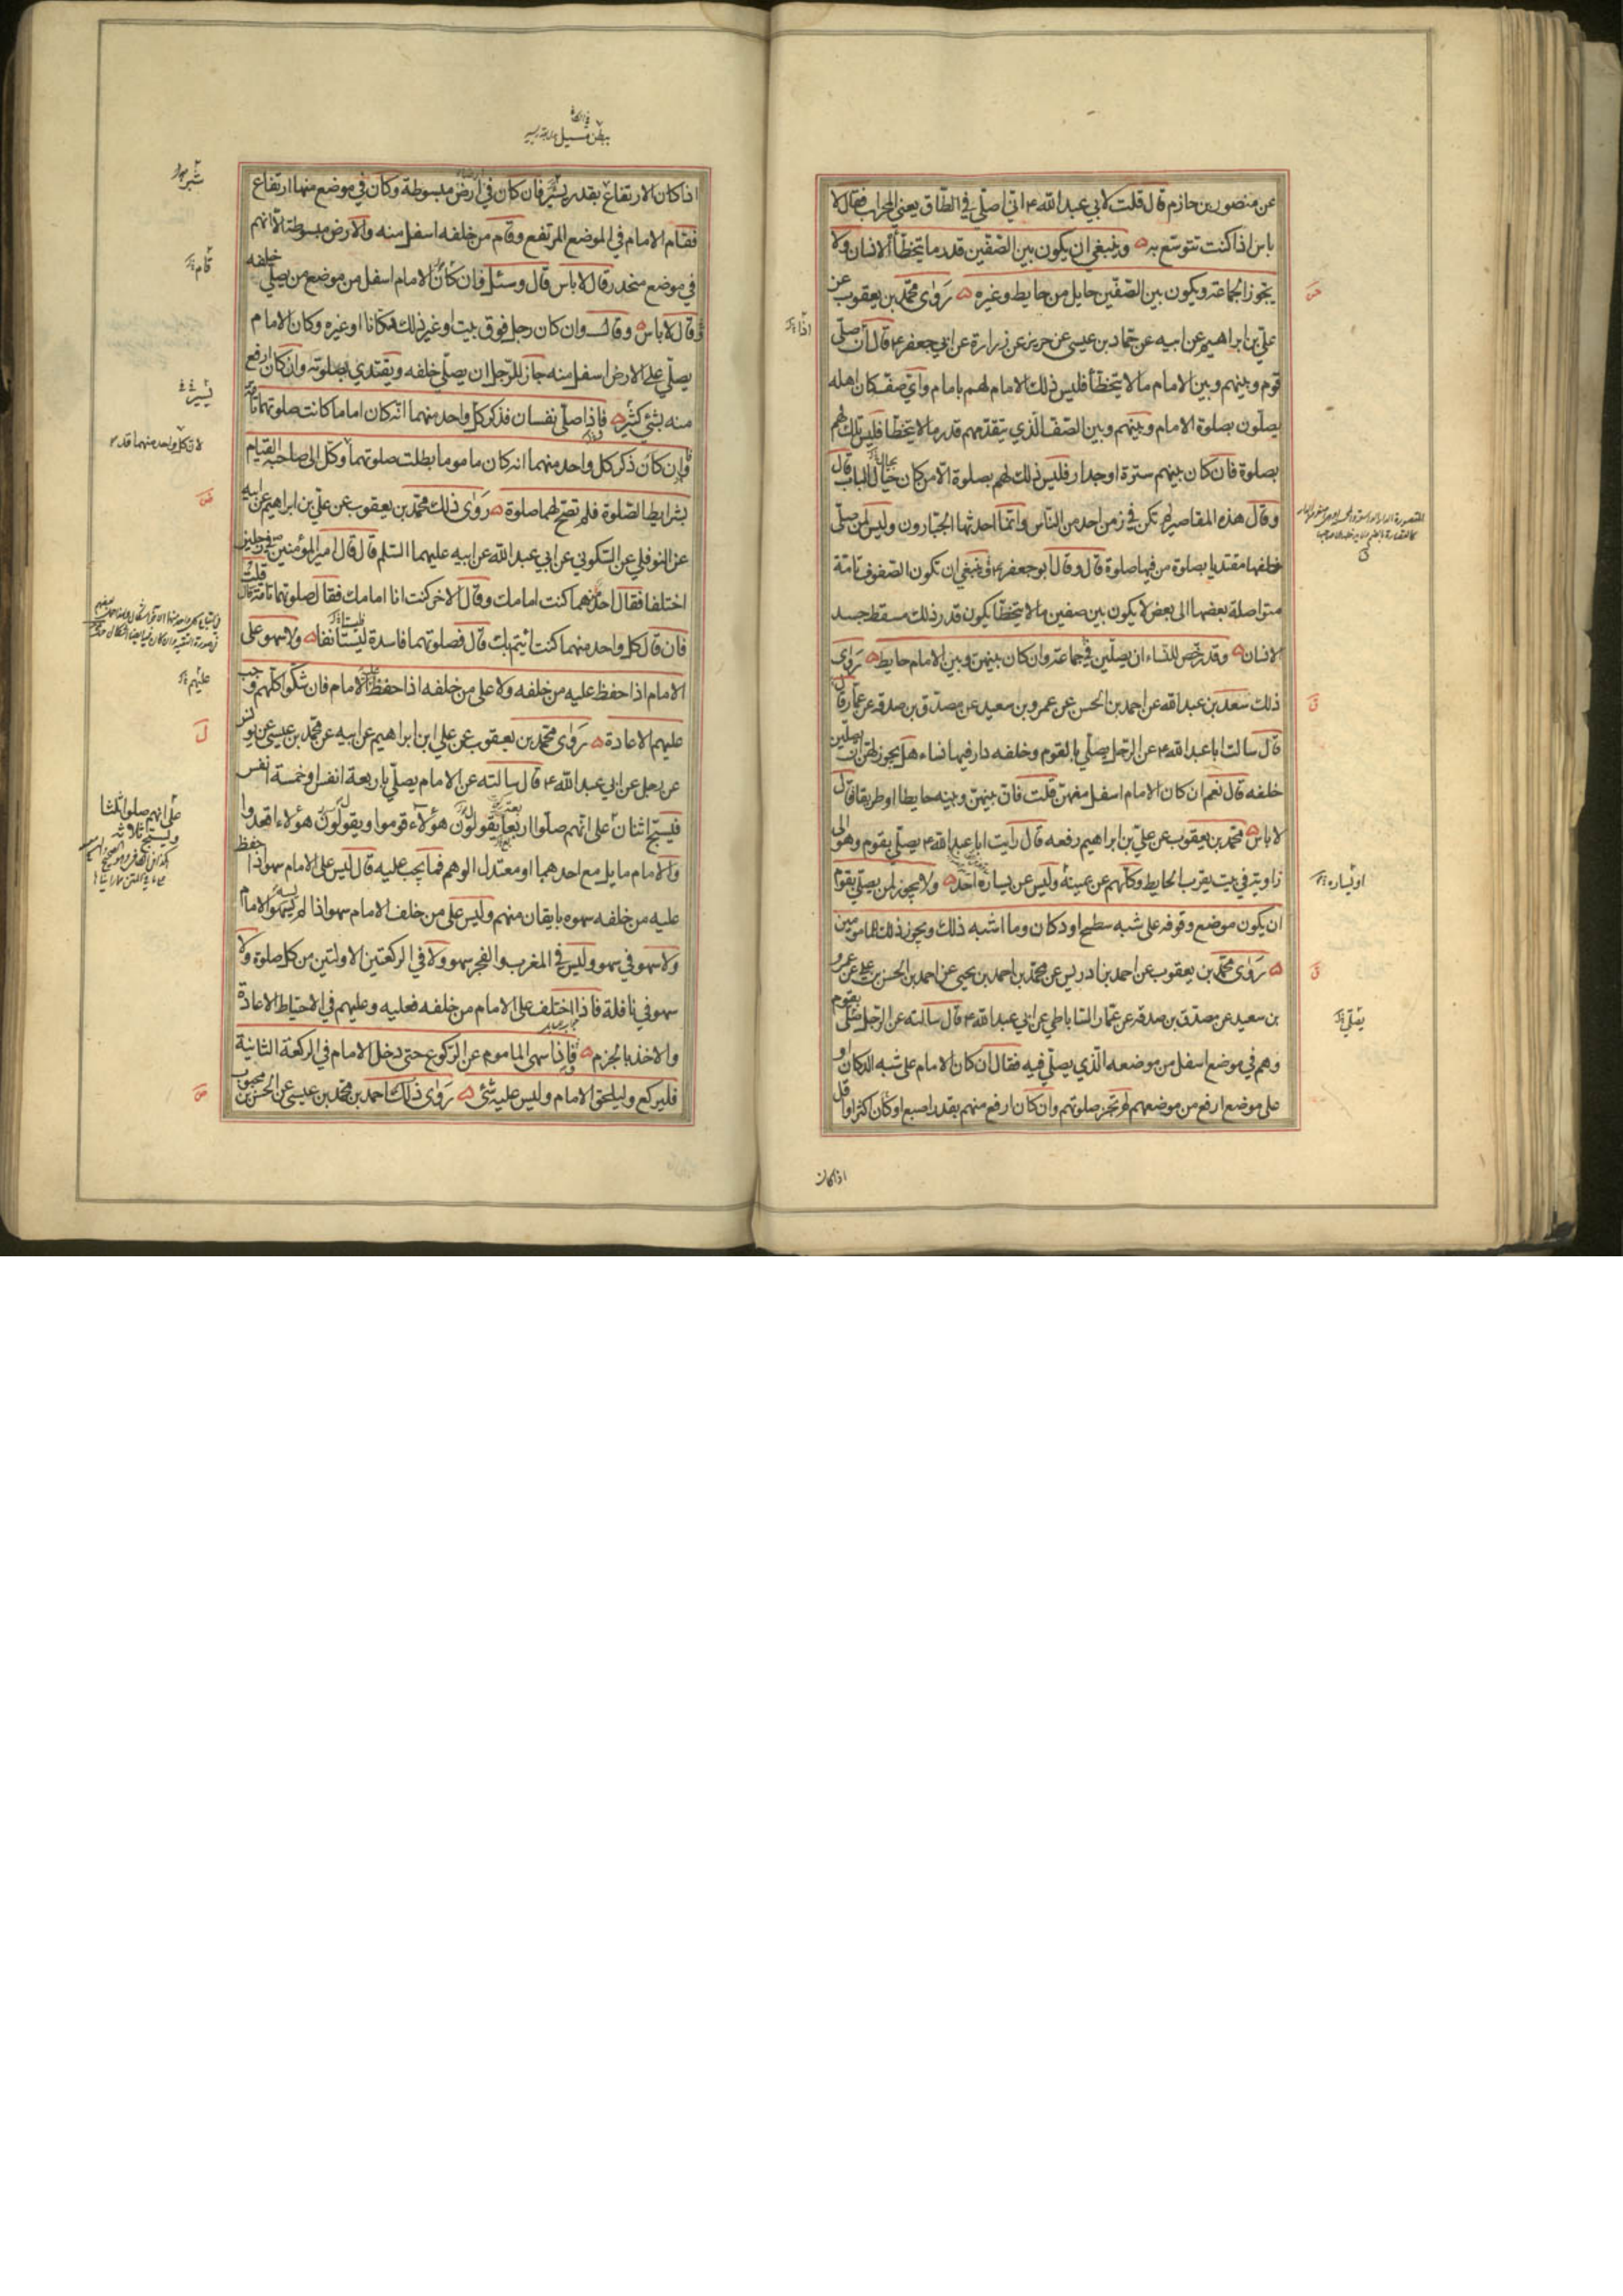 عن منصور بن حازم قال قلت لابي عبد الله ع اني اصلي في الطاق يعني المحراب فقال لا
باس اذا كنت تتوسع به وينبغي ان يكون بين الصفين قدر ما يتخطأ الانسان ولا
يجوز الجماعة ويكون بين الصفين حايل من حايط وغيره روى محمد بن يعقوب عن
علي بن ابراهيم عن ابيه عن حماد بن عيسى عن حريز عن زرارة عن ابي جعفر ع قال ان صلى
قوم وبينهم وبين الامام ما لا يتخطأ فليس ذلك الامام لهم بامام واي صف كان اهله
يصلون بصلوة الامام وبينهم وبين الصف الذي يتقدمهم قدر ما لا يتخطأ فليس تلك لهم
بصلوة فان كان بينهم سترة او جدار فليس ذلك لهم بصلوة الا من كان حيال الباب قال
وقال هذه المقاصير لم تكن في زمن احد من الناس وانما احدثها الجبارون وليس لمن صلى
خلفها مقتديا بصلوة من فيها صلوة قال وقال ابو جعفر ع وينبغي ان تكون الصفوف تامة
متواصلة بعضها الى بعض لا يكون بين صفين ما لا يتخطأ يكون قدر ذلك مسقط جسد
الانسان وقد رخص للنساء ان يصلين في جماعة وان كان بينهن وبين الامام حايط روى
ذلك سعد بن عبد الله عن احمد بن الحسن عن عمرو بن سعيد عن مصدق بن صدقة عن عمار قال
قال سالت ابا عبد الله ع عن الرجل يصلي بالقوم وخلفه دار فيها نساء هل يجوز لهن ان يصلين
خلفه قال نعم ان كان الامام اسفل منهن قلت فان بينهن وبينه حايطا او طريقا قال
لا باس محمد بن يعقوب عن علي بن ابراهيم رفعه قال رايت ابا عبد الله ع يصلي بقوم وهو الى
زاوية في بيت بقرب الحايط وكلهم عن يمينه وليس عن يساره احد ولا يجوز لمن يصلي بقوم
ان يكون موضع وقوفه على شبه سطح او دكان وما اشبه ذلك ويجوز ذلك للمامومين
روى محمد بن يعقوب عن احمد بن ادريس عن محمد بن احمد بن يحيى عن احمد بن الحسن بن علي عن عمرو
بن سعيد عن مصدق بن صدقة عن عمار الساباطي عن ابي عبد الله ع قال سالته عن الرجل صلى بقوم
وهم في موضع اسفل من موضعه الذي يصلي فيه فقال ان كان الامام على شبه الدكان او
على موضع ارفع من موضعهم لم تجز صلوتهم وان كان ارفع منهم بقدر اصبع او كان اكثر او اقل
اذا كان
اذا
او يساره
يصلي
ببطن مسيل
اذا كان الارتفاع بقدر يسير فان كان في ارض مبسوطة وكان في موضع منها ارتفاع
فقام الامام في الموضع المرتفع وقام من خلفه اسفل منه والارض مبسوطة الا انهم
في موضع منحدر قال لا باس قال وسئل فان كان الامام اسفل من موضع من يصلي خلفه
قال لا باس وقال وان كان رجل فوق بيت او غير ذلك دكانا او غيره وكان الامام
يصلي على الارض اسفل منه جاز للرجل ان يصلي خلفه ويقتدي بصلوته وان كان ارفع
منه بشئ كثير فاذا صلى نفسان فذكر كل واحد منهما انه كان اماما كانت صلوتهما تامة
وان كان ذكر كل واحد منهما انه كان ماموما بطلت صلوتهما وكل الى صاحبه القيام
بشرايط الصلوة فلم تصح لهما صلوة روى ذلك محمد بن يعقوب عن علي بن ابراهيم عن ابيه
عن النوفلي عن السكوني عن ابي عبد الله عن ابيه عليهما السلم قال قال امير المؤمنين ع في رجلين
اختلفا فقال احدهما كنت امامك وقال الاخر كنت انا امامك فقال صلوتهما تامة قال قلت
فان قال كل واحد منهما كنت ائتم بك قال فصلوتهما فاسدة ليستانفا ولا سهو على
الامام اذا حفظ عليه من خلفه ولا على من خلفه اذا حفظ الامام فان شكوا كلهم وجب
عليهم الاعادة روى محمد بن يعقوب عن علي ابن ابراهيم عن ابيه عن محمد بن عيسى عن يونس
عن رجل عن ابي عبد الله ع قال سالته عن الامام يصلي باربعة انفس او خمسة انفس
فيسبح اثنان على انهم صلوا اربعا يقولون هؤلاء قوموا ويقولون هؤلاء اقعدوا
والامام مايل مع احدهما او معتدل الوهم فما يجب عليه قال ليس على الامام سهو اذا حفظ
عليه من خلفه سهوه بايقان منهم وليس على من خلف الامام سهو اذا لم يسهو الامام
ولا سهو في سهو وليس في المغرب والفجر سهو ولا في الركعتين الاولتين من كل صلوة ولا
سهو في نافلة فاذا اختلف على الامام من خلفه فعليه وعليهم في الاحتياط الاعادة
والاخذ بالجزم فاذا سهى الماموم عن الركوع حتى دخل الامام في الركعة الثانية
فليركع وليلحق الامام وليس عليه شئ روى ذلك احمد بن محمد بن عيسى عن الحسن بن محبوب
شبر
قام
يسير
لان كل واحد منهما قد
عليهم
على انهم صلوا ثلثا
ويسبح ثلاثة